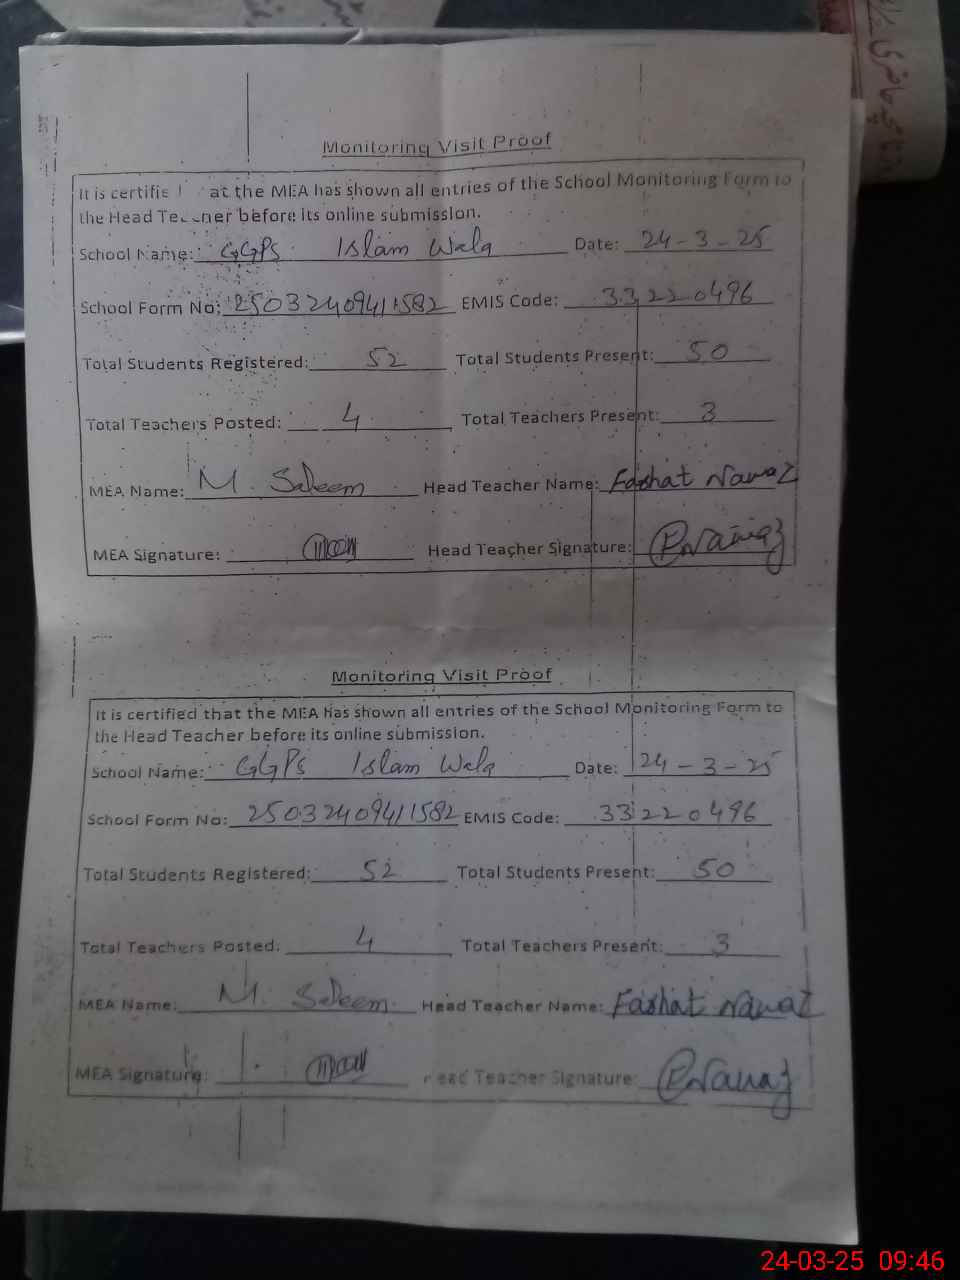 Monitoring Visit Proof
It is certifie at the MEA has shown all entries of the School Monitoring Form to
the Head Teacher before its online submission.
School Name: GGPS Islam Wala Date: 24-3-25
School Form No: 2503240941582 EMIS Code: 33220496
Total Students Registered: 52 Total Students Present: 50
Total Teachers Posted: 4 Total Teachers Present: 3
MEA Name: M. Saleem Head Teacher Name: Nawaz
MEA Signature: Head Teacher Signature: Nawaz
Monitoring Visit Proof
It is certified that the MEA has shown all entries of the School Monitoring Form to
the Head Teacher before its online submission.
School Name: GGPS Islam Wala Date: 24-3-25
School Form No: 2503240941582 EMIS Code: 33220496
Total Students Registered: 52 Total Students Present: 50
Total Teachers Posted: 4 Total Teachers Present: 3
MEA Name: M. Saleem Head Teacher Name: Nawaz
MEA Signature: Head Teacher Signature: Nawaz
24-03-25 09:46